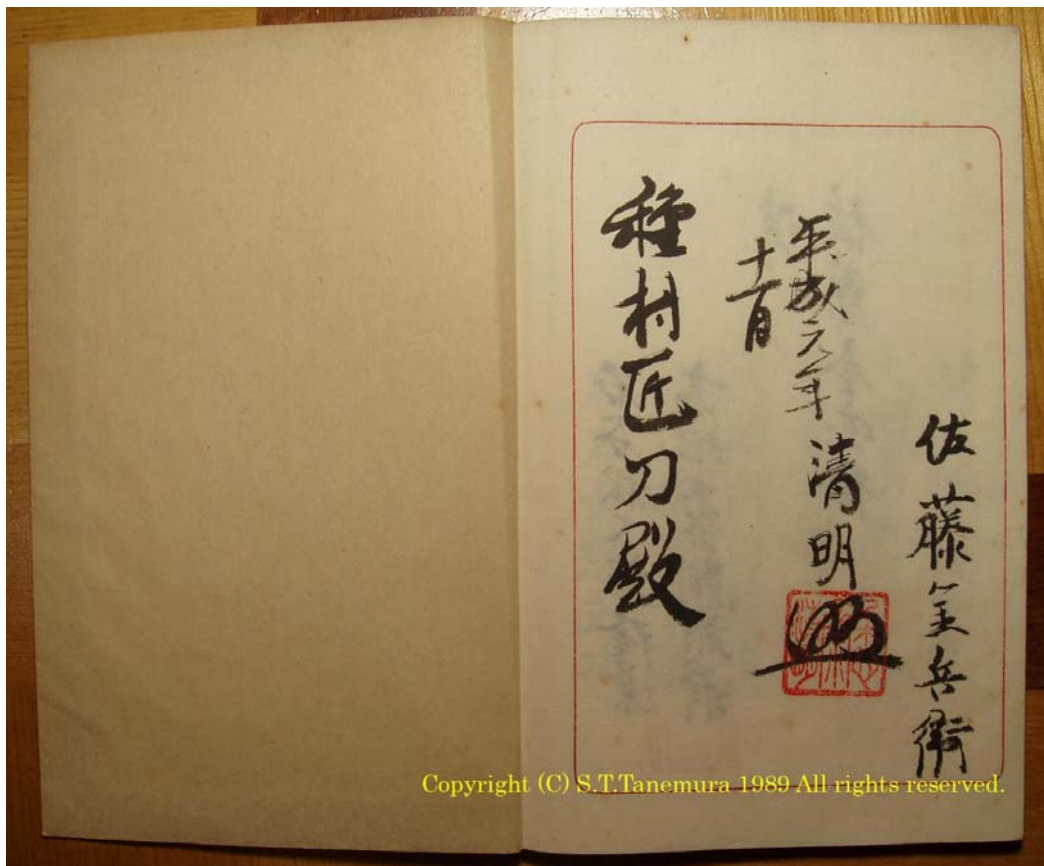 佐藤金兵衛
平成元年
十一月
清明
種村匠刀殿
Copyright (C) S.T.Tanemura 1989 All rights reserved.